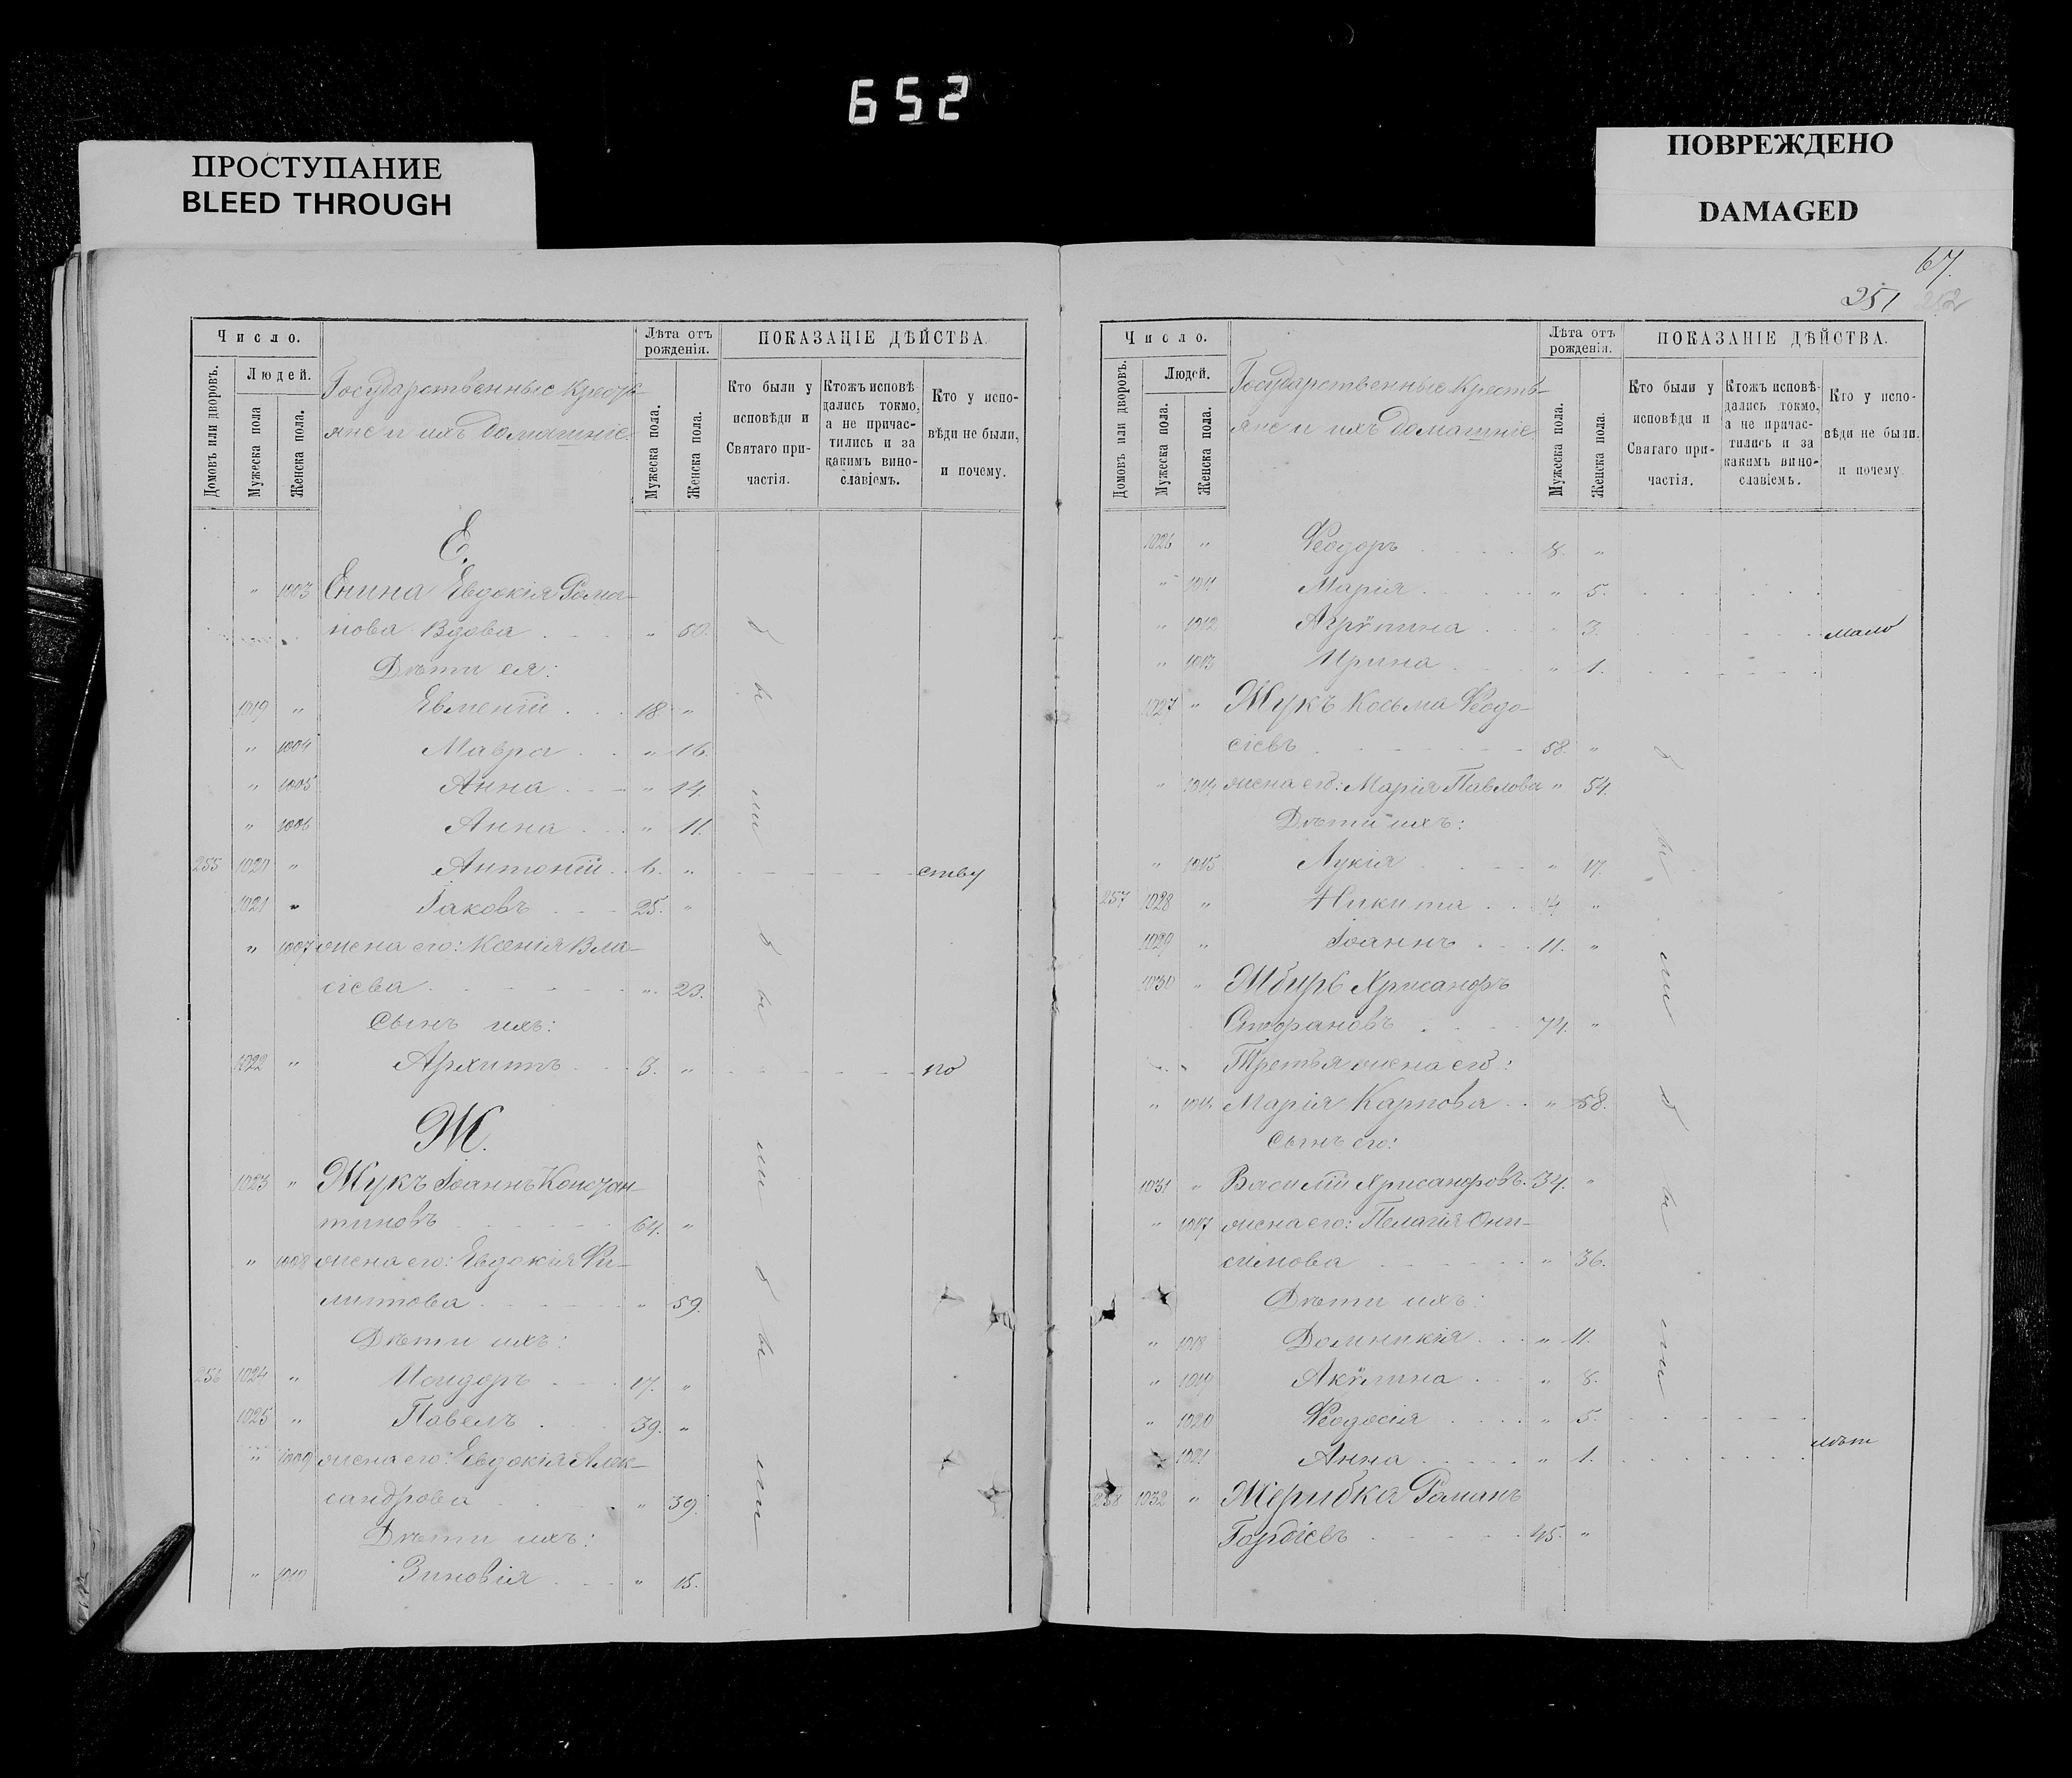 652
ПРОСТУПАНИЕ
BLEED THROUGH
ПОВРЕЖДЕНО
DAMAGED
67.
251 252
Число.
Людей.
Домовъ или дворовъ.
Мужеска пола
Женска пола.
Государственные Кресть-
яне и ихъ домашніе.
Лѣта отъ
рожденія.
Мужеска пола.
Женска пола.
ПОКАЗАЦІЕ ДѢЙСТВА.
Кто были у
исповѣди и
Святаго при-
частія.
Ктожъ исповѣ-
дались токмо,
а не причас-
тились и за
какимъ вино-
славіемъ.
Кто у испо-
вѣди не были,
и почему.
Е.
" 1003 Енина Евдокія Рома-
нова Вдова " 50.
Дѣти ея:
1019 " Евменій 18. "
" 1004 Мавра " 16.
" 1005 Анна " 14.
" 1006 Анна " 11.
255 1020 " Антоній 6. " ству
1021 " Іаковъ 25. "
" 1007 жена его: Ксенія Вла-
сіева " 23.
Сынъ ихъ:
1022 " Архипъ 3. " по
Ж.
1023 " Жукъ Іоаннъ Констан-
тиновъ 64. "
" 1008 жена его: Евдокія Фи-
липова " 59.
Дѣти ихъ:
256 1024 " Исидоръ 17. "
1025 " Павелъ 39. "
" 1009 жена его: Евдокія Алек-
сандрова " 39.
Дѣти ихъ:
" 1010 Зиновія " 15.
были были были
Число.
Людей.
Домовъ или дворовъ.
Мужеска пола.
Женска пола.
Государственные Кресть-
яне и ихъ домашніе.
Лѣта отъ
рожденія.
Мужеска пола.
Женска пола.
ПОКАЗАНІЕ ДѢЙСТВА.
Кто были у
исповѣди и
Святаго при-
частія.
Ктожъ исповѣ-
дались токмо,
а не причас-
тились и за
какимъ вино-
славіемъ.
Кто у испо-
вѣди не были.
и почему
1026 " Ѳеодоръ 8. "
" 1011 Марія " 5.
" 1012 Агрупина " 3. мало
" 1013 Ирина " 1.
1027 " Жукъ Косьма Ѳеодо-
сіевъ 58. "
" 1014 жена его: Марія Павлова " 54.
Дѣти ихъ:
" 1015 Лукія " 17.
257 1028 " Никита "
1029 " Іоаннъ 11. "
1030 " Хрисанфъ
Стефановъ 74. "
Третья жена его:
" 1016 Марія Карпова " 58.
Сынъ его:
1031 " Василій Хрисанфовъ. 34. "
" 1017 жена его: Пелагія Они-
симова " 36.
Дѣти ихъ:
" 1018 Домникія " 11.
" 1019 Акулина " 8.
" 1020 Ѳеодосія " 5.
" 1021 Анна " 1. лѣт
258 1032 " Романъ
Гордіевъ 45. "
были были